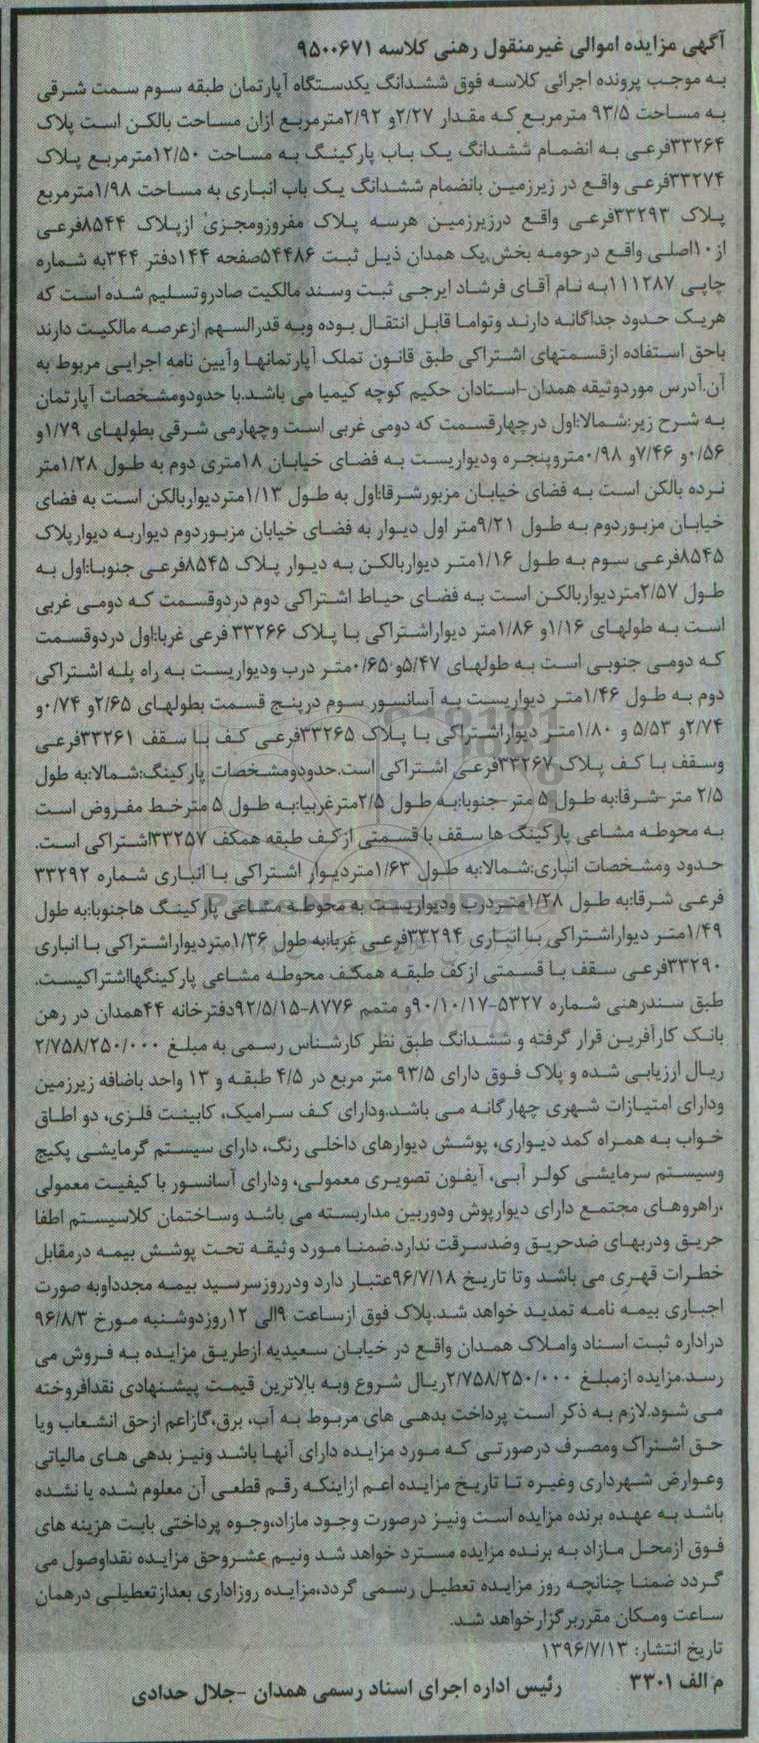 آگهی مزایده اموالی غیرمنقول رهنی کلاسه ۹۵۰۰۶۷۱
به موجب پرونده اجرائی کلاسه فوق ششدانگ یکدستگاه آپارتمان طبقه سوم سمت شرقی
به مساحت ۹۳/۵ مترمربع که مقدار ۲/۲۷و ۲/۹۲مترمربع ازان مساحت بالکن است پلاک
۳۳۲۶۴فرعی به انضمام ششدانگ یک باب پارکینگ به مساحت ۱۲/۵۰مترمربع پلاک
۳۳۲۷۴فرعی واقع در زیرزمین بانضمام ششدانگ یک باب انباری به مساحت ۱/۹۸مترمربع
پلاک ۳۳۲۹۳فرعی واقع درزیرزمین هرسه پلاک مفروزومجزی ازپلاک ۸۵۴۴فرعی
از۱۰اصلی واقع درحومه بخش یک همدان ذیل ثبت ۵۴۴۸۶صفحه ۱۴۴دفتر ۳۴۴به شماره
چاپی ۱۱۱۲۸۷به نام آقای فرشاد ایرجی ثبت وسند مالکیت صادروتسلیم شده است که
هریک حدود جداگانه دارند وتواما قابل انتقال بوده وبه قدرالسهم ازعرصه مالکیت دارند
باحق استفاده ازقسمتهای اشتراکی طبق قانون تملک آپارتمانها وآیین نامه اجرایی مربوط به
آن.آدرس موردوثیقه همدان-استادان حکیم کوچه کیمیا می باشد.با حدودومشخصات آپارتمان
به شرح زیر:شمالا:اول درچهارقسمت که دومی غربی است وچهارمی شرقی بطولهای ۱/۷۹و
۰/۵۶و ۷/۴۶و ۰/۹۸متروپنجره ودیواریست به فضای خیابان ۱۸متری دوم به طول ۱/۲۸متر
نرده بالکن است به فضای خیابان مزبورشرقا:اول به طول ۱/۱۳متردیواربالکن است به فضای
خیابان مزبوردوم به طول ۹/۲۱متر اول دیوار به فضای خیابان مزبوردوم دیواربه دیوارپلاک
۸۵۴۵فرعی سوم به طول ۱/۱۶متر دیواربالکن به دیوار پلاک ۸۵۴۵فرعی جنوبا:اول به
طول ۲/۵۷متردیواربالکن است به فضای حیاط اشتراکی دوم دردوقسمت که دومی غربی
است به طولهای ۱/۱۶و ۱/۸۶متر دیواراشتراکی با پلاک ۳۳۲۶۶ فرعی غربا:اول دردوقسمت
که دومی جنوبی است به طولهای ۵/۴۷و۰/۶۵متر درب ودیواریست به راه پله اشتراکی
دوم به طول ۱/۴۶متر دیواریست به آسانسور سوم درپنج قسمت بطولهای ۲/۶۵و ۰/۷۴و
۲/۷۴و ۵/۵۳ و ۱/۸۰متر دیواراشتراکی با پلاک ۳۳۲۶۵فرعی کف با سقف ۳۳۲۶۱فرعی
وسقف با کف پلاک ۳۳۲۶۷فرعی اشتراکی است.حدودومشخصات پارکینگ:شمالا:به طول
۲/۵ متر-شرقا:به طول ۵ متر-جنوبا:به طول ۲/۵مترغربیا:به طول ۵ مترخط مفروض است
به محوطه مشاعی پارکینگ ها سقف با قسمتی ازکف طبقه همکف ۳۳۲۵۷اشتراکی است.
حدود ومشخصات انباری:شمالا:به طول ۱/۶۳متردیوار اشتراکی با انباری شماره ۳۳۲۹۲
فرعی شرقا:به طول ۱/۲۸متردرب ودیواریست به محوطه مشاعی پارکینگ هاجنوبا:به طول
۱/۴۹متر دیواراشتراکی با انباری ۳۳۲۹۴فرعی غربا:به طول ۱/۳۶متردیواراشتراکی با انباری
۳۳۲۹۰فرعی سقف با قسمتی ازکف طبقه همکف محوطه مشاعی پارکینگهااشتراکیست.
طبق سندرهنی شماره ۵۳۲۷-۹۰/۱۰/۱۷و متمم ۸۷۷۶-۹۲/۵/۱۵دفترخانه ۴۴همدان در رهن
بانک کارآفرین قرار گرفته و ششدانگ طبق نظر کارشناس رسمی به مبلغ ۲/۷۵۸/۲۵۰/۰۰۰
ریال ارزیابی شده و پلاک فوق دارای ۹۳/۵ متر مربع در ۴/۵ طبقه و ۱۳ واحد باضافه زیرزمین
ودارای امتیازات شهری چهارگانه می باشد.ودارای کف سرامیک، کابینت فلزی، دو اطاق
خواب به همراه کمد دیواری، پوشش دیوارهای داخلی رنگ، دارای سیستم گرمایشی پکیج
وسیستم سرمایشی کولر آبی، آیفون تصویری معمولی، ودارای آسانسور با کیفیت معمولی
،راهروهای مجتمع دارای دیوارپوش ودوربین مداربسته می باشد وساختمان کلاسیستم اطفا
حریق ودربهای ضدحریق وضدسرقت ندارد.ضمنا مورد وثیقه تحت پوشش بیمه درمقابل
خطرات قهری می باشد وتا تاریخ ۹۶/۷/۱۸عتبار دارد ودرروزسرسید بیمه مجدداوبه صورت
اجباری بیمه نامه تمدید خواهد شد.پلاک فوق ازساعت ۹الی ۱۲روزدوشنبه مورخ ۹۶/۸/۳
دراداره ثبت اسناد واملاک همدان واقع در خیابان سعیدیه ازطریق مزایده به فروش می
رسد.مزایده ازمبلغ ۲/۷۵۸/۲۵۰/۰۰۰ریال شروع وبه بالاترین قیمت پیشنهادی نقدافروخته
می شود.لازم به ذکر است پرداخت بدهی های مربوط به آب، برق،گازاعم ازحق انشعاب ویا
حق اشتراک ومصرف درصورتی که مورد مزایده دارای آنها باشد ونیز بدهی های مالیاتی
وعوارض شهرداری وغیره تا تاریخ مزایده اعم ازاینکه رقم قطعی آن معلوم شده یا نشده
باشد به عهده برنده مزایده است ونیز درصورت وجود مازاد،وجوه پرداختی بابت هزینه های
فوق ازمحل مازاد به برنده مزایده مسترد خواهد شد ونیم عشروحق مزایده نقداوصول می
گردد ضمنا چنانچه روز مزایده تعطیل رسمی گردد،مزایده روزاداری بعدازتعطیلی درهمان
ساعت ومکان مقرربرگزارخواهد شد.
تاریخ انتشار: ۱۳۹۶/۷/۱۳
م الف ۳۳۰۱ رئیس اداره اجرای اسناد رسمی همدان -جلال حدادی